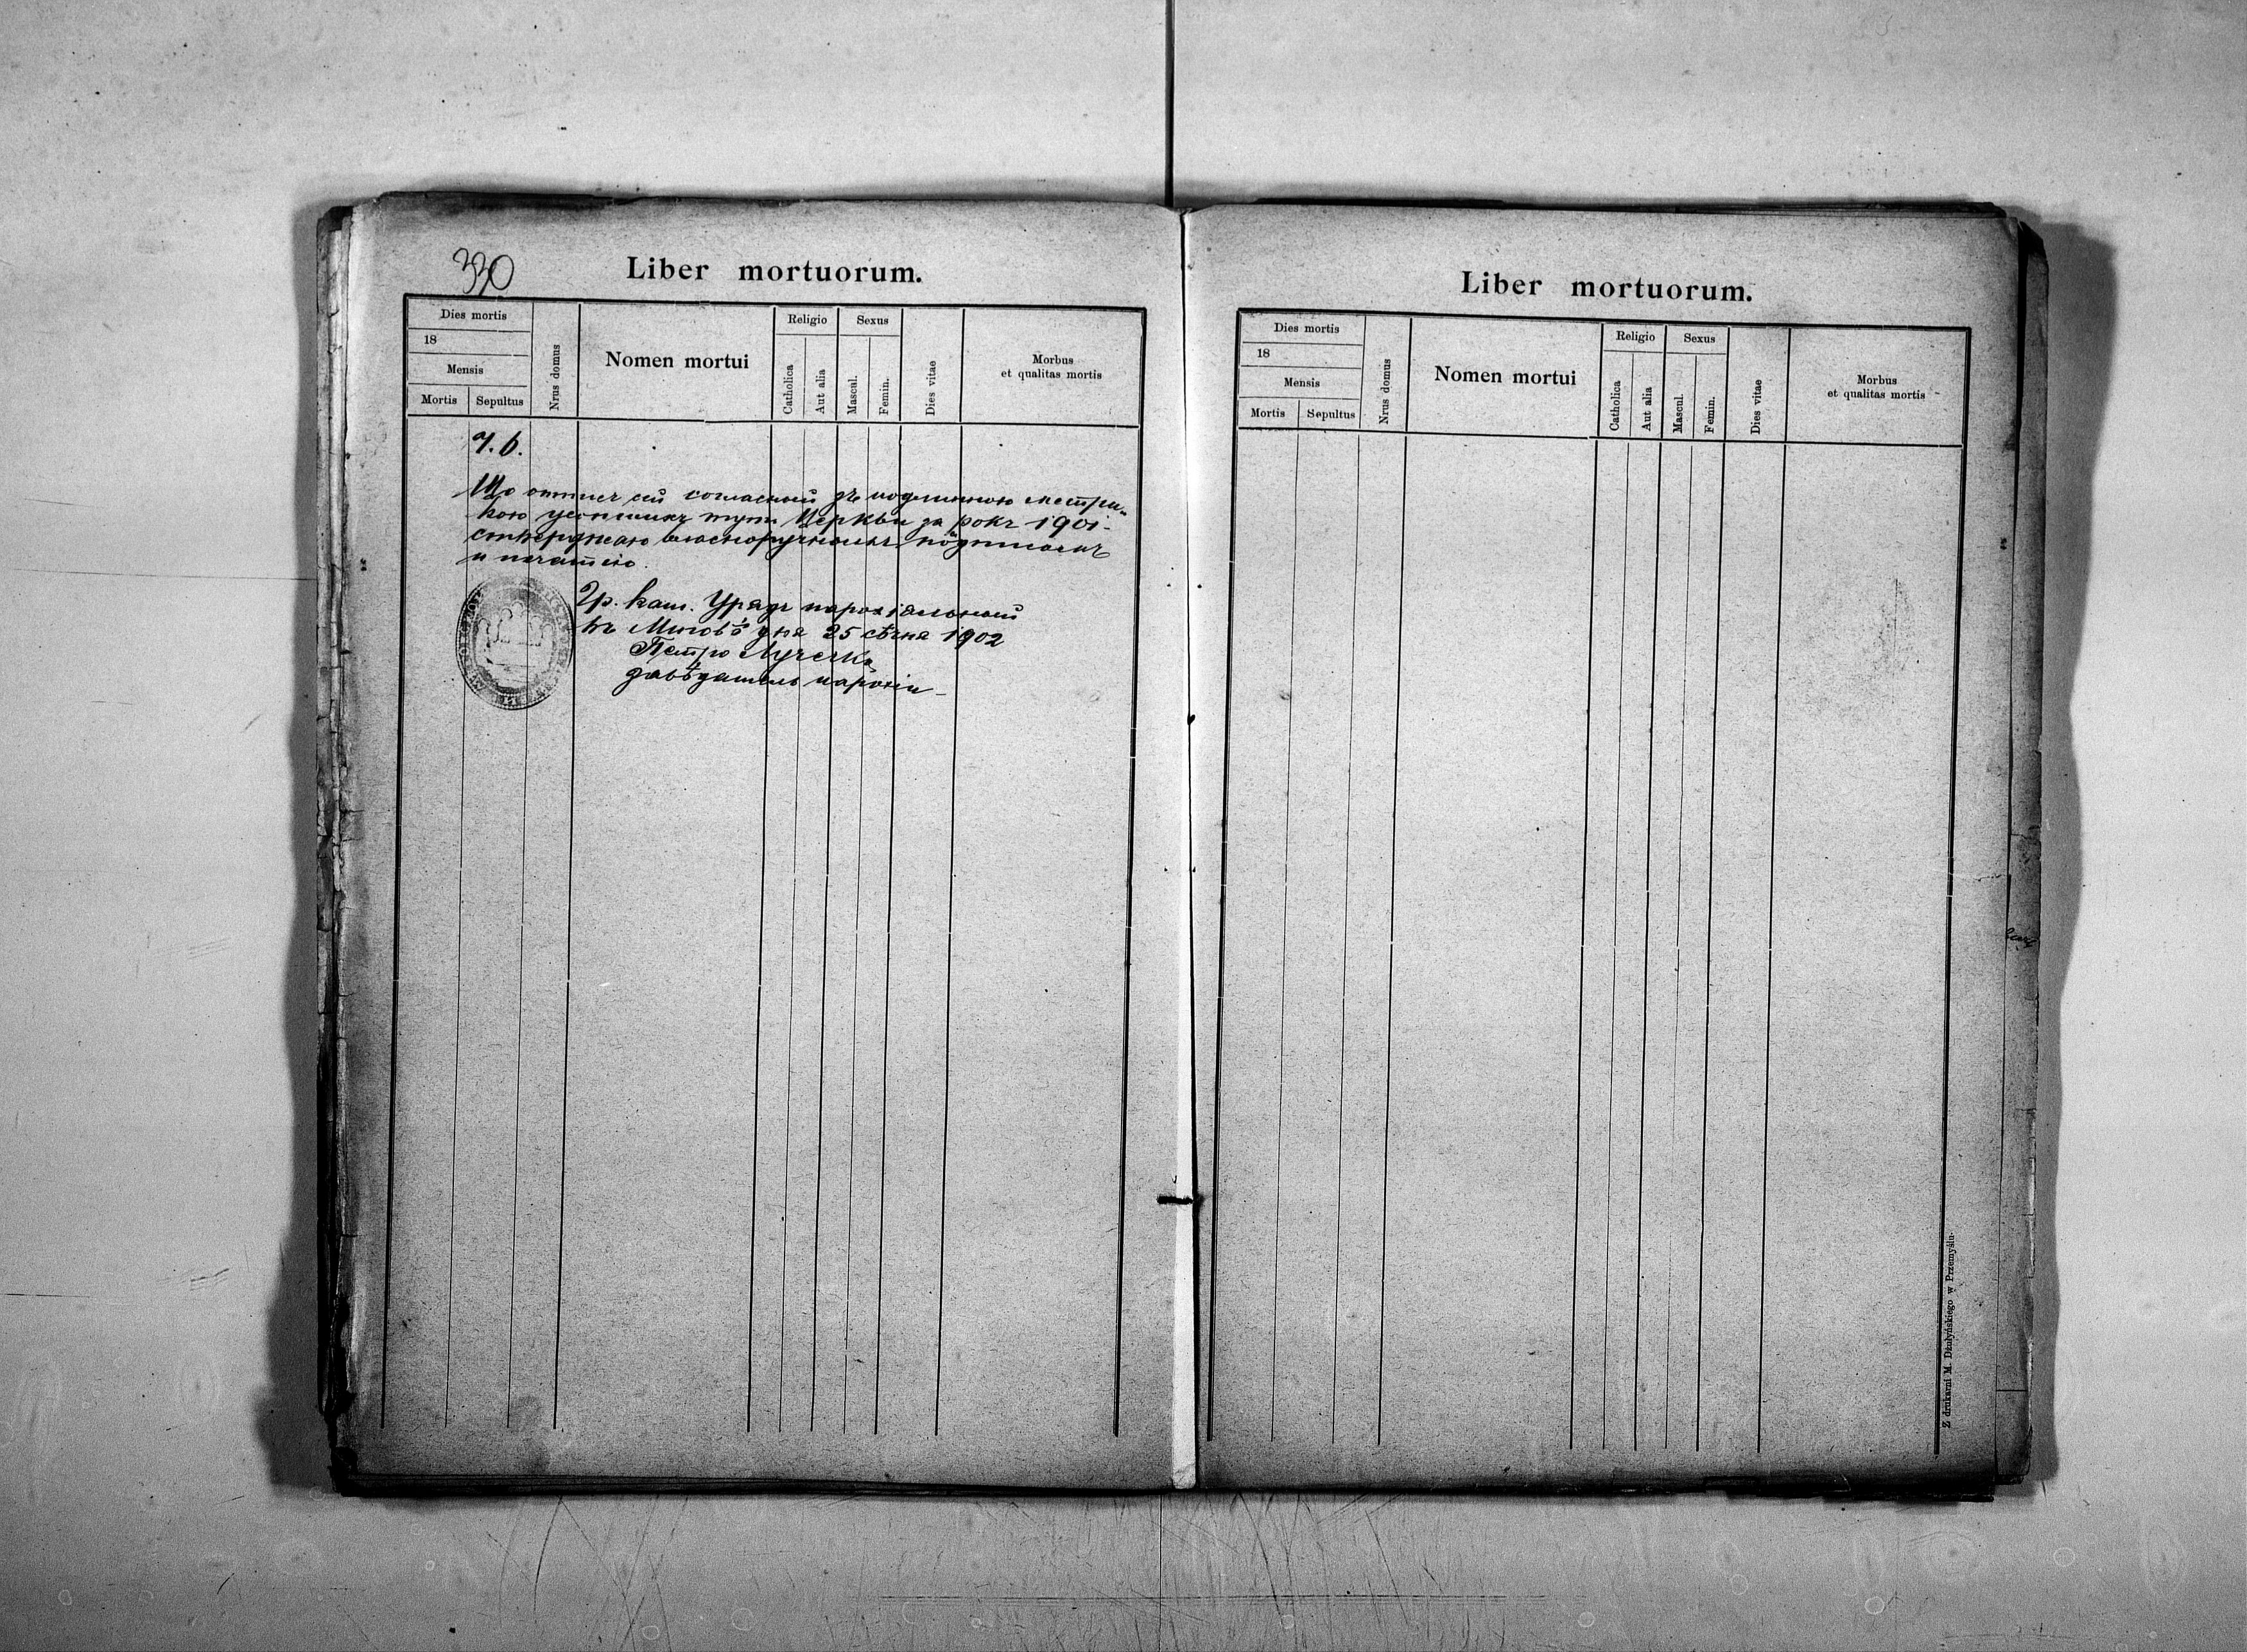 330
Liber mortuorum.
Dies mortis
18
Mensis
Mortis Sepultus
Nrus domus
Nomen mortui
Religio
Catholica
Aut alia
Sexus
Mascul.
Femin.
Dies vitae
Morbus
et qualitas mortis
Що отпись сей согласный зъ подлинною метри-
кою усопшихъ тут. Церкви за рокъ 1901
стверджаю власноручнымъ пôдписомъ
и печатею.
Гр. кат. Урядъ парохіальный
въ дня 25 сѣчня 1902
Петро
завѣдатель парохіи
Liber mortuorum.
Dies mortis
18
Mensis
Mortis Sepultus
Nrus domus
Nomen mortui
Religio
Catholica
Aut alia
Sexus
Mascul.
Femin.
Dies vitae
Morbus
et qualitas mortis
Z drukarni M. Dżułyńskiego w Przemyślu